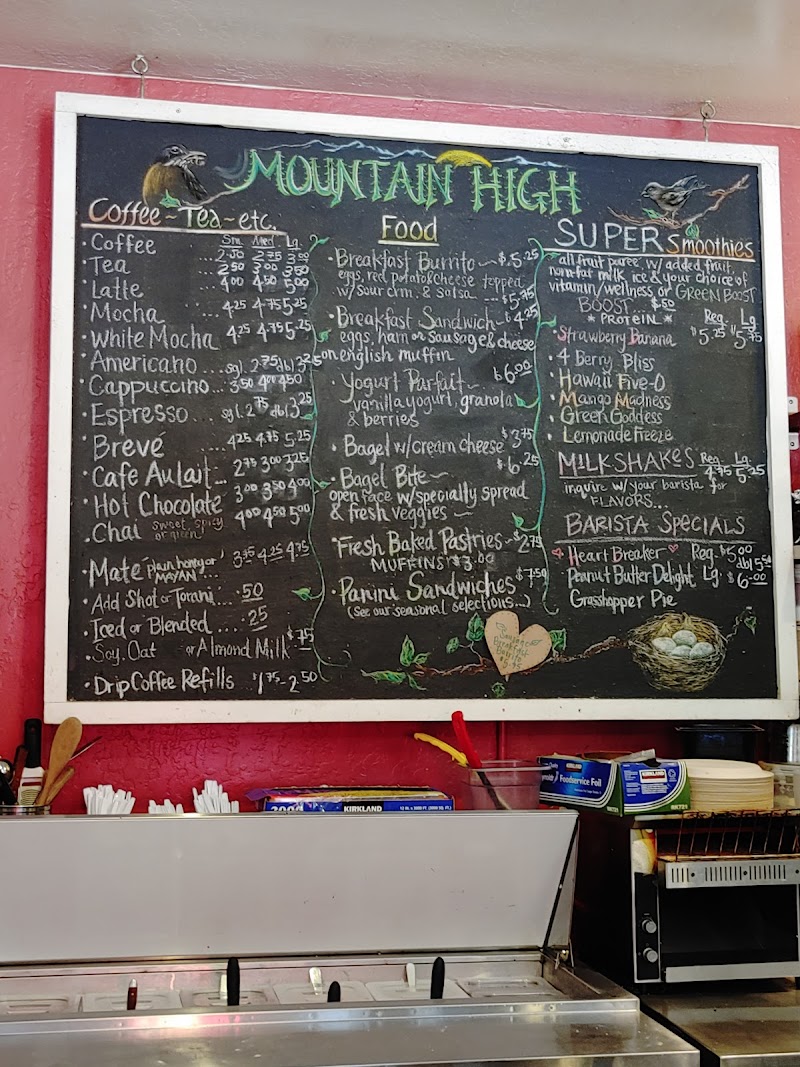 MOUNTAIN HIGH
Coffee ~ Tea ~ etc.
Sm. Med. Lg.
Coffee ... 2.50 2.75 3.50
Tea ... 2.50 3.00 3.50
Latte 4.00 4.50 5.00
Mocha ... 4.25 4.75 5.25
White Mocha 4.25 4.75 5.25
Americano ... sgl. 2.75 dbl 3.25
Cappuccino ... 3.50 4.00 4.50
Espresso ... sgl. 2.75 dbl 3.25
Brevé ... 4.25 4.75 5.25
Cafe Au Lait ... 2.75 3.00 3.25
Hot Chocolate 3.00 3.50 4.00
Chai sweet, spicy 4.00 4.50 5.00
or green
Maté plain, honey or 3.75 4.25 4.75
MAYAN ...
Add Shot or Torani ... .50
Iced or Blended .... .25
Soy, Oat or Almond Milk $.75
Drip Coffee Refills $1.75 - 2.50
Food
Breakfast Burrito ~ $5.25
eggs, red potato & cheese topped
w/ sour crm. & salsa --- $5.75
Breakfast Sandwich ~ $4.25
eggs, ham or sausage & cheese
on english muffin
Yogurt Parfait ~ $6.00
vanilla yogurt, granola
& berries
Bagel w/ cream cheese $3.75
Bagel Bite ~ $6.25
open face w/ specially spread
& fresh veggies ~
Fresh Baked Pastries - $2.75
MUFFINS $3.00
Panini Sandwiches $7.50
(see our seasonal selections...)
Sausage
Breakfast
Burrito
SUPER Smoothies
all fruit puree w/ added fruit,
nonfat milk, ice & your choice of
vitamin/wellness or GREEN BOOST
BOOST $.50
* PROTEIN * Reg. Lg.
Strawberry Banana $5.25 $5.75
4 Berry Bliss
Hawaii Five-O
Mango Madness
Green Goddess
Lemonade Freeze
MILKSHAKES Reg. Lg.
4.75 5.25
inquire w/ your barista for
FLAVORS...
BARISTA SPECIALS
Heart Breaker Reg. $5.00
dbl 5.50
Peanut Butter Delight Lg. $6.00
Grasshopper Pie
KIRKLAND
Foodservice Foil
KIRKLAND